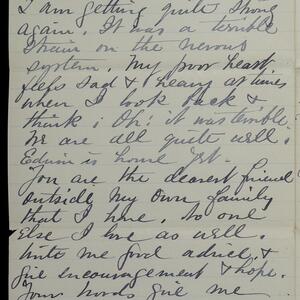 I am getting quite strong
again. It was a terrible
strain on the nervous
system. My poor heart
feels sad & heavy at times
when I look back &
think; Oh! it was terrible.
We are all quite well.
Edwin is home yet.
You are the dearest friend
outside my own family
that I have. No one
Else I love as well.
Write me good advice, &
give encouragement & hope.
Your words give me